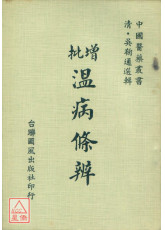 中國醫藥叢書
清·吳鞠通選輯
增批
溫病條辨
台聯國風出版社印行